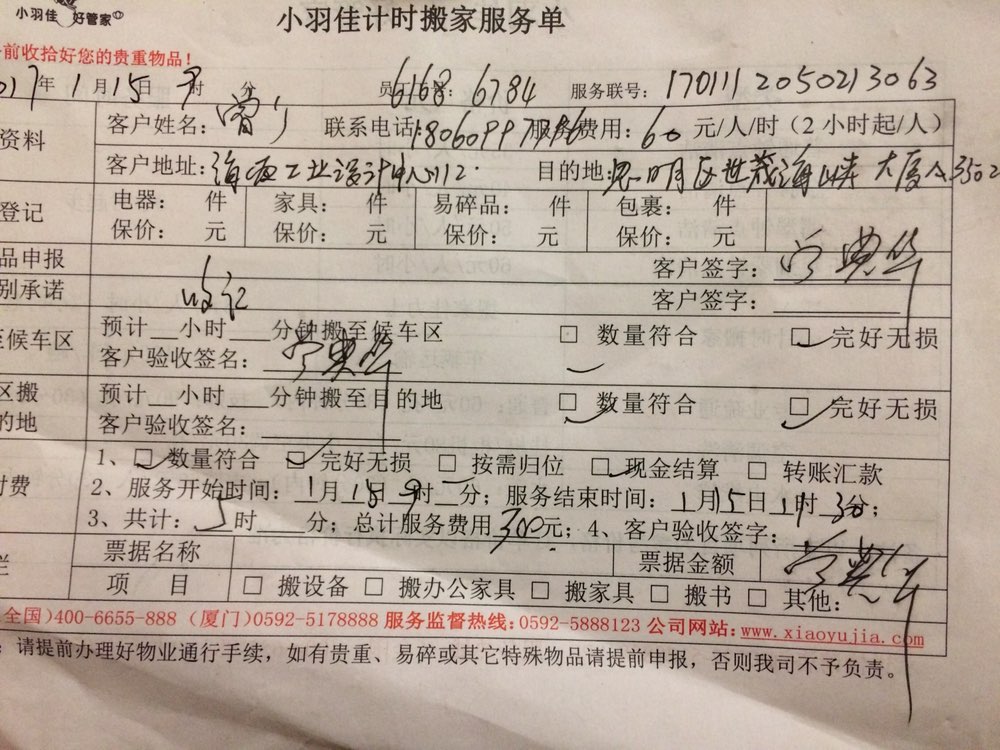 小羽佳 好管家
小羽佳计时搬家服务单
前收拾好您的贵重物品！
017年1月15日9时 分 员 号：6168 6784 服务联号：170111 2050213063
资料 客户姓名：曾 联系电话：1806099 服务费用：60元/人/时（2小时起/人）
客户地址：海西工业设计中心112 目的地：思明区世茂海峡大厦A3502
登记 电器： 件 家具： 件 易碎品： 件 包裹： 件
保价： 元 保价： 元 保价： 元 保价： 元
品申报 客户签字：
别承诺 客户签字：
至候车区 预计 小时 分钟搬至候车区 □ 数量符合 □ 完好无损
客户验收签名：
区搬 预计 小时 分钟搬至目的地 □ 数量符合 □ 完好无损
的地 客户验收签名：
1、□ 数量符合 □ 完好无损 □ 按需归位 □ 现金结算 □ 转账汇款
付费 2、服务开始时间：1月15日9时 分；服务结束时间：1月15日11时30分；
3、共计：5时 分；总计服务费用300元；4、客户验收签字：
栏 票据名称 票据金额
项 目 □ 搬设备 □ 搬办公家具 □ 搬家具 □ 搬书 □ 其他：
全国)400-6655-888 (厦门)0592-5178888 服务监督热线：0592-5888123 公司网站：www.xiaoyujia.com
：请提前办理好物业通行手续，如有贵重、易碎或其它特殊物品请提前申报，否则我司不予负责。